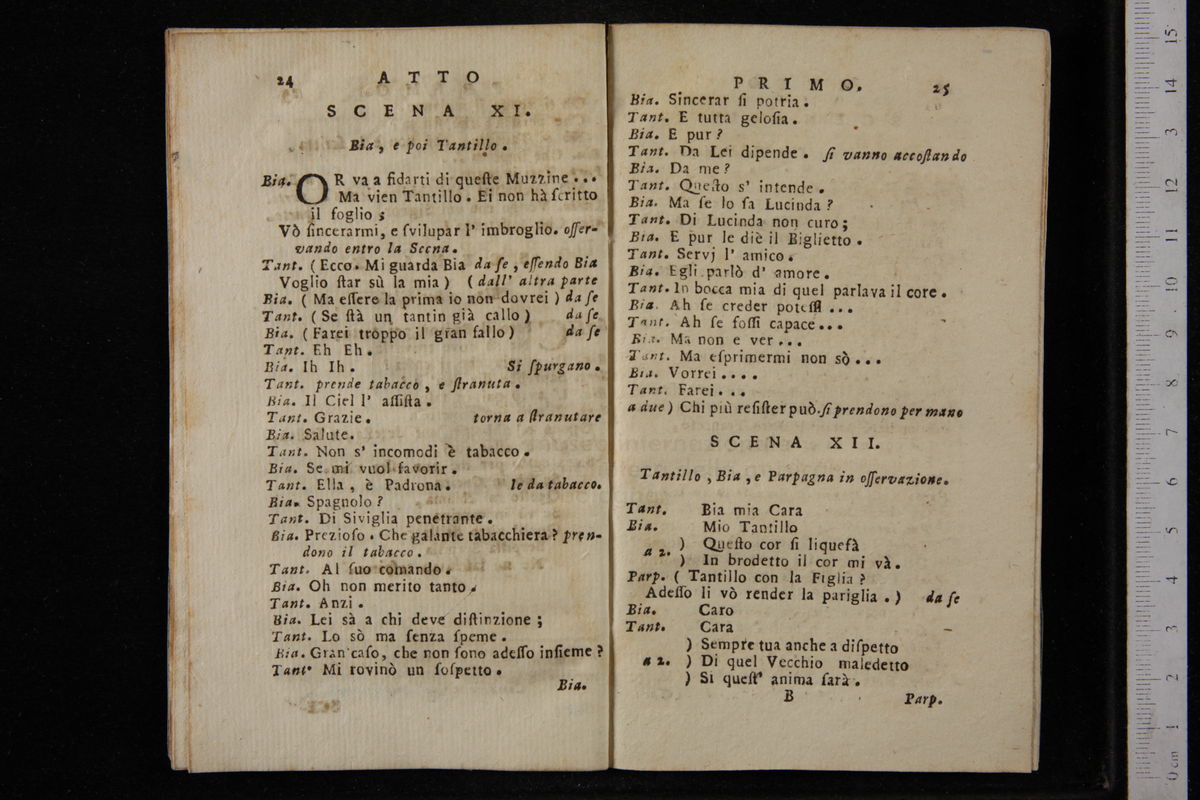 24 ATTO
SCENA XI.
Bia, e poi Tantillo.
Bia. OR va a fidarti di queſte Muzzine...
Ma vien Tantillo. Ei non hà ſcritto
il foglio;
Vò ſincerarmi, e ſvilupar l' imbroglio. oſſer-
vando entro la Scena.
Tant. (Ecco. Mi guarda Bia da ſe, eſſendo Bia
Voglio ſtar sù la mia) (dall' altra parte
Bia. (Ma eſſere la prima io non dovrei) da ſe
Tant. (Se ſtà un tantin già callo) da ſe
Bia. (Farei troppo il gran fallo) da ſe
Tant. Eh Eh.
Bia. Ih Ih. Si ſpurgano.
Tant. prende tabacco, e ſtranuta.
Bia. Il Ciel l' aſſiſta.
Tant. Grazie. torna a ſtranutare
Bia. Salute.
Tant. Non s' incomodi è tabacco.
Bia. Se mi vuol favorir.
Tant. Ella, è Padrona. le da tabacco.
Bia. Spagnolo?
Tant. Di Siviglia penetrante.
Bia. Prezioſo. Che galante tabacchiera? pren-
dono il tabacco.
Tant. Al ſuo comando.
Bia. Oh non merito tanto.
Tant. Anzi.
Bia. Lei sà a chi deve diſtinzione;
Tant. Lo sò ma ſenza ſpeme.
Bia. Gran caſo, che non ſono adeſſo inſieme?
Tant. Mi rovinò un ſoſpetto.
Bia.
PRIMO. 25
Bia. Sincerar ſi potria.
Tant. E tutta geloſia.
Bia. E pur?
Tant. Da Lei dipende. ſi vanno accoſtando
Bia. Da me?
Tant. Queſto s' intende.
Bia. Ma ſe lo ſa Lucinda?
Tant. Di Lucinda non curo;
Bia. E pur le diè il Biglietto.
Tant. Servj l' amico.
Bia. Egli parlò d' amore.
Tant. In bocca mia di quel parlava il core.
Bia. Ah ſe creder poteſſi...
Tant. Ah ſe foſſi capace...
Bia. Ma non e ver...
Tant. Ma eſprimermi non sò...
Bia. Vorrei....
Tant. Farei...
a due) Chi più reſiſter può. ſi prendono per mano
SCENA XII.
Tantillo, Bia, e Parpagna in oſſervazione.
Tant. Bia mia Cara
Bia. Mio Tantillo
a 2. ) Queſto cor ſi liquefà
) In brodetto il cor mi và.
Parp. (Tantillo con la Figlia?
Adeſſo li vò render la pariglia.) da ſe
Bia. Caro
Tant. Cara
) Sempre tua anche a diſpetto
a 2. ) Di quel Vecchio maledetto
) Si queſt' anima ſarà.
B Parp.